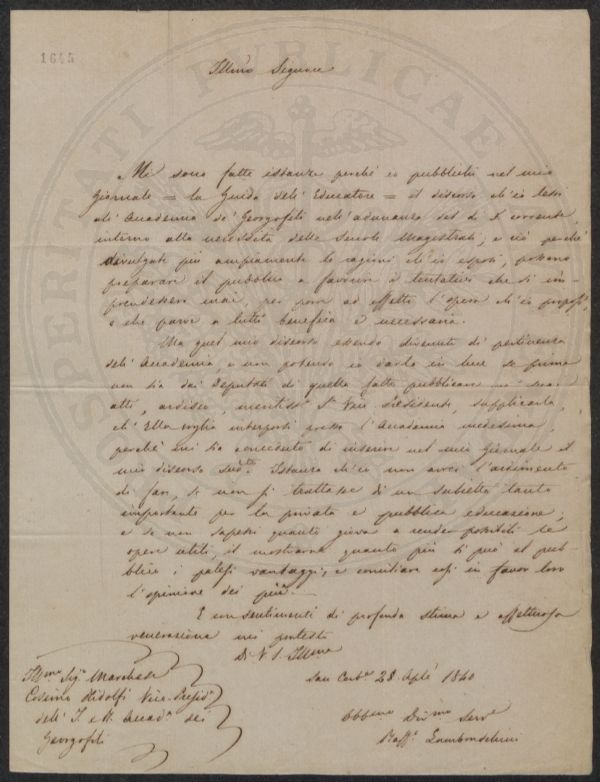 1645
Illmo Signore
Mi sono fatte istanze perché io pubblichi nel mio
Giornale = la Guida dell' Educatore = il discorso ch'io lessi
all' Accademia de' Georgofili nell' adunanza del dì 5 corrente,
intorno alla necessità delle Scuole Magistrali, e ciò perché
divulgate più ampiamente le ragioni ch'io esposi, possano
preparare il pubblico a favorire i tentativi che si im-
prendessero mai, per porre ad effetto l'opera ch'io proposi,
e che parve a tutti benefica e necessaria.
Ma quel mio discorso essendo divenuto di pertinenza
dell' Accademia, e non potendo io darlo in luce se prima
non sia dai Deputati di quella fatto pubblicare ne' suoi
atti, ardisco, meritiss° Sr Vice Presidente, supplicarla,
ch' Ella voglia interporsi presso l'Accademia medesima,
perché mi sia conceduto di inserire nel mio Giornale il
mio discorso sudto. Istanza ch'io non avrei l'ardimento
di fare, se non si trattasse di un subietto tanto
importante per la privata e pubblica educazione;
e se non sapessi quanto giova a render possibili le
opere utili, il mostrarne quanto più si può al pub-
blico i palesi vantaggi, e conciliare così in favor loro
l'opinione dei più.
E con sentimenti di profonda stima e affettuosa
venerazione mi protesto
Di V. S. Illma
San Cerbe 28 Aple 1840
Illmo Sigr Marchese
Cosimo Ridolfi Vice-Presidte
dell' I. e R. Accada dei
Georgofili
Obbmo Divmo Servo
Raffe Lambruschini